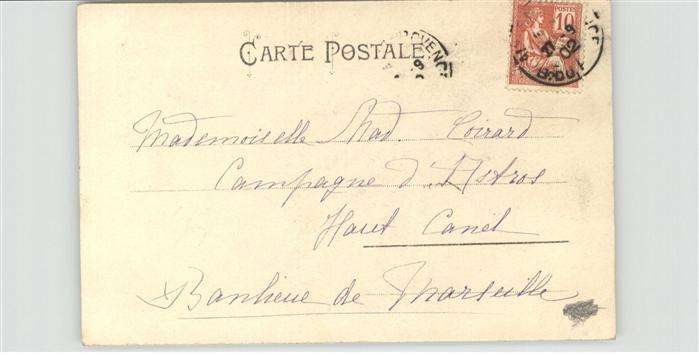 CARTE POSTALE
PROVENCE
POSTES
10
27
9
02
B. DU R.
Mademoiselle Mad. Coirard
Campagne d'Astros
Haut Canet
Banlieue de Marseille